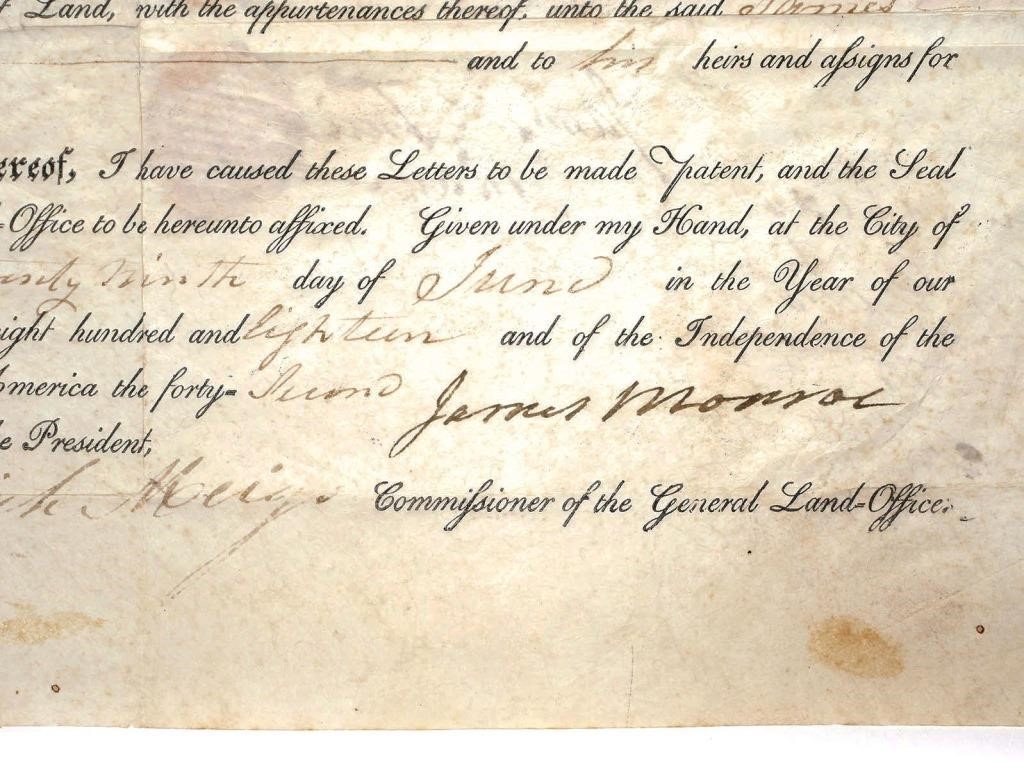 f Land, with the appurtenances thereof, unto the said James
and to his heirs and aſsigns for
ereof, I have caused these Letters to be made Patent, and the Seal
-Office to be hereunto affixed. Given under my Hand, at the City of
enty ninth day of June in the Year of our
ight hundred and eighteen and of the Independence of the
America the forty= Second James Monroe
e President,
Meigs Commiſsioner of the General Land=Office.